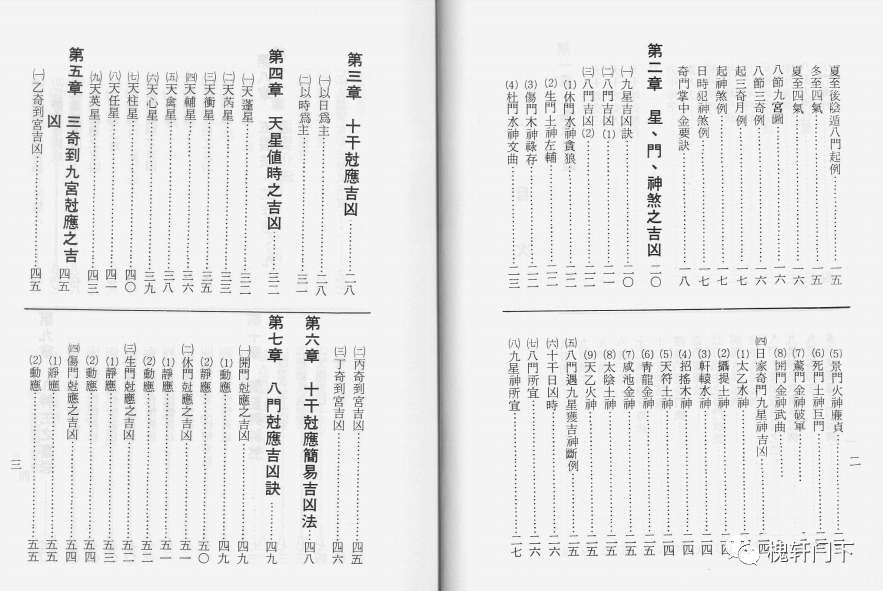 夏至後陰遁八門起例……一五
冬至四氣……一五
夏至四氣……一六
八節九宮圖……一六
八節三奇例……一六
起三奇月例……一七
起神煞例……一七
日時犯神煞例……一七
奇門掌中金要訣……一八
第二章 星、門、神煞之吉凶……二〇
㈠九星吉凶訣……二〇
㈡八門吉凶⑴……二一
㈢八門吉凶⑵……二二
⑴休門水神貪狼……二二
⑵生門土神左輔……二二
⑶傷門木神祿存……二二
⑷杜門水神文曲……二三
⑸景門火神廉貞……二
⑹死門土神巨門
⑺驚門金神破軍
⑻開門金神武曲
㈣日家奇門九星神吉凶……四
⑴太乙水神
⑵攝提土神……二四
⑶軒轅水神……二四
⑷招搖木神……二四
⑸天符土神……二四
⑹青龍金神……二五
⑺咸池金神……二五
⑻太陰土神……二五
⑼天乙火神……二五
㈤八門遇九星獲吉神斷例……二五
㈥十干日凶時……二六
㈦八門所宜……二六
㈧九星神所宜……二七
二
第三章 十干尅應吉凶……二八
㈠以日爲主……二八
㈡以時爲主……三一
第四章 天星值時之吉凶……三二
㈠天蓬星……三二
㈡天芮星……三三
㈢天衝星……三五
㈣天輔星……三六
㈤天禽星……三八
㈥天心星……三九
㈦天柱星……四〇
㈧天任星……四一
㈨天英星……四三
第五章 三奇到九宮尅應之吉
凶……四五
㈠乙奇到宮吉凶……四五
㈡丙奇到宮吉凶……四五
㈢丁奇到宮吉凶……四六
第六章 十干尅應簡易吉凶法……四八
第七章 八門尅應吉凶訣……四九
㈠開門尅應之吉凶……四九
⑴動應……四九
⑵靜應……五〇
㈡休門尅應之吉凶……五一
⑴靜應……五一
⑵動應……五二
㈢生門尅應之吉凶……五二
⑴靜應……五三
⑵動應……五四
㈣傷門尅應之吉凶……五四
⑴靜應……五五
⑵動應……五五
三
槐轩门下